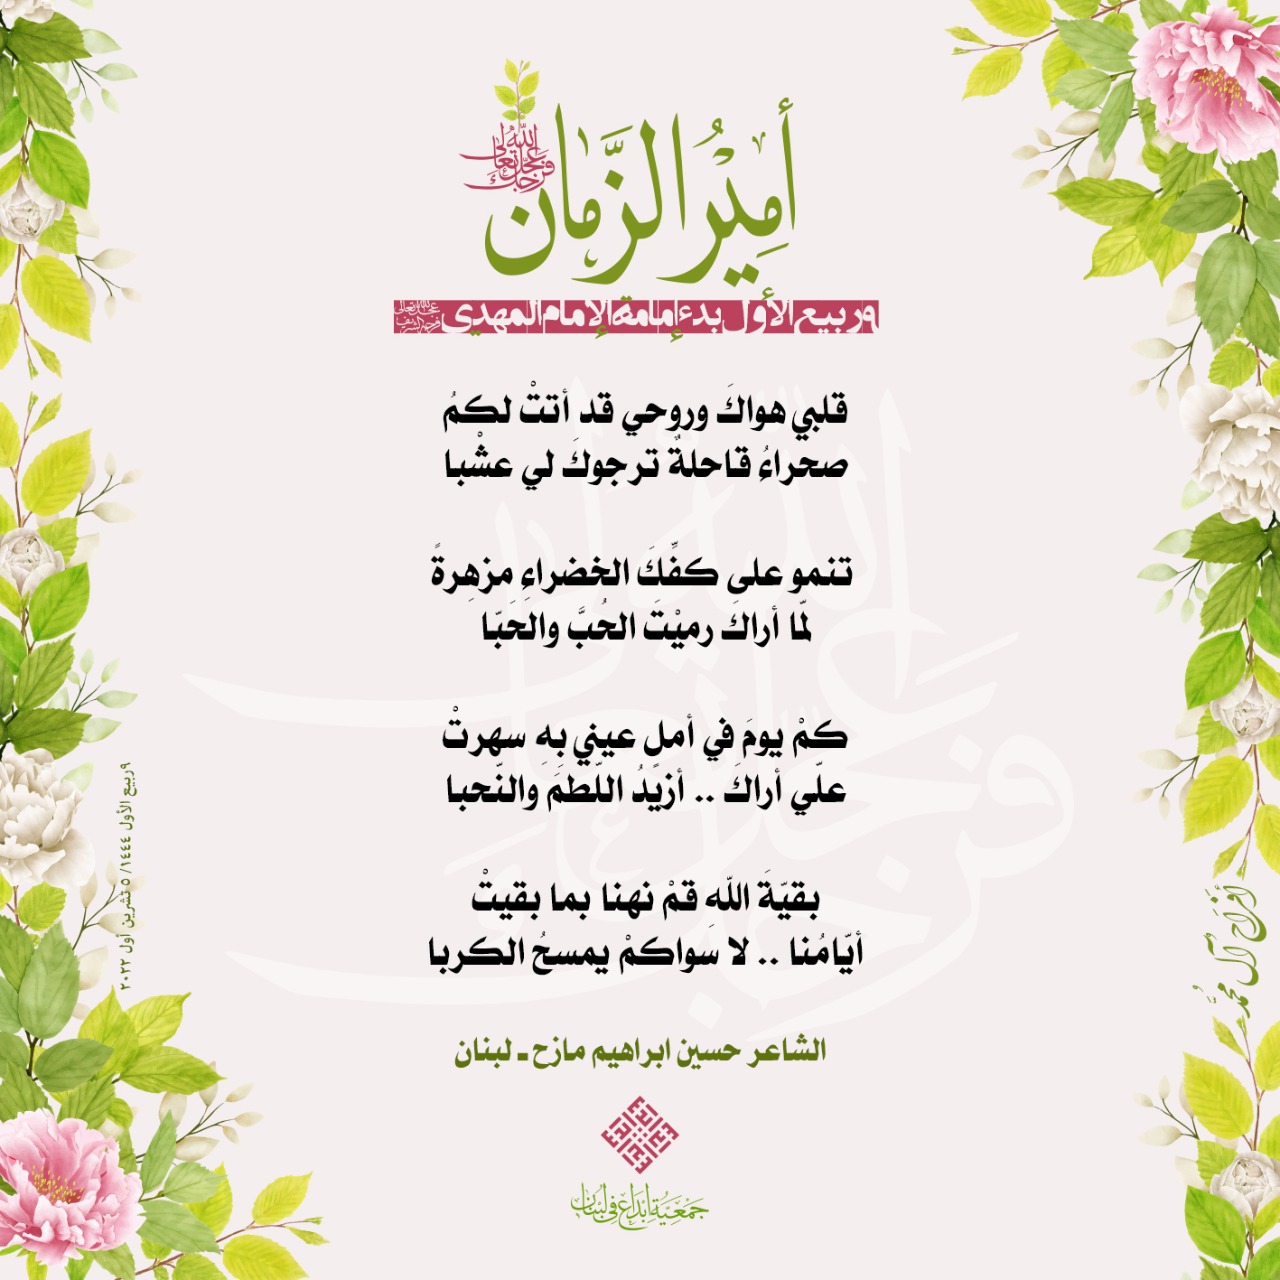 أَمِيْرُ الزَّمان
عجّل الله تعالى فرجك
٩ ربيع الأول بدء إمامة الإمام المهدي عجل الله تعالى فرجه الشريف
قلبي هواكَ وروحي قد أتتْ لكمُ
صحراءُ قاحلةٌ ترجوكَ لي عشْبا
تنمو على كفِّكَ الخضراءِ مزهِرةً
لمّا أراكَ رميْتَ الحُبَّ والحَبّا
كمْ يومَ في أملٍ عيني بِهِ سهرتْ
علّي أراكَ .. أزيدُ اللّطمَ والنّحبا
بقيّةَ اللّه قمْ نهنا بما بقيتْ
أيّامُنا .. لا سَواكمْ يمسحُ الكربا
الشاعر حسين ابراهيم مازح - لبنان
جمعية إبداع في لبنان
٩ ربيع الأول ١٤٤٤/ ٥ تشرين أول ٢٠٢٢
أفراح آل محمد